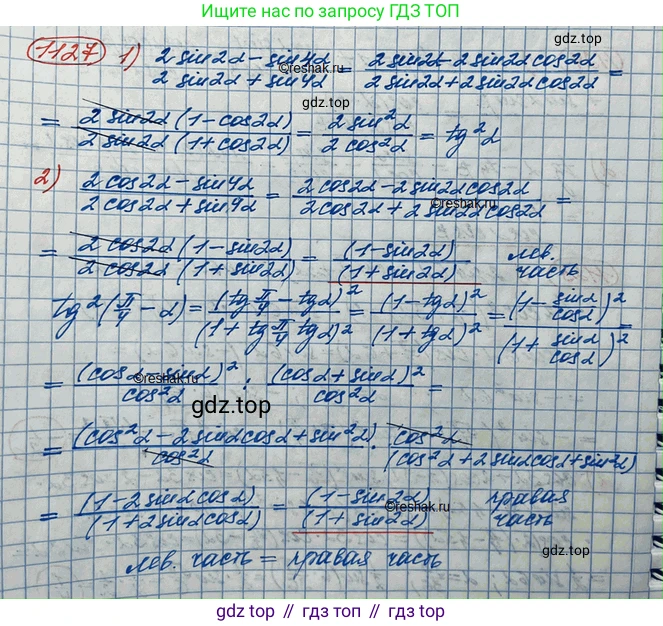 Ищите нас по запросу ГДЗ ТОП
1127 1) (2 sin2α - sin4α)/(2 sin2α + sin4α) = (2 sin2α - 2 sin2α cos2α)/(2 sin2α + 2 sin2α cos2α) =
©reshak.ru
= (2 sin2α (1 - cos2α))/(2 sin2α (1 + cos2α)) = (2 sin²α)/(2 cos²α) = tg²α
2) (2 cos2α - sin4α)/(2 cos2α + sin4α) = (2 cos2α - 2 sin2α cos2α)/(2 cos2α + 2 sin2α cos2α) =
= (2 cos2α (1 - sin2α))/(2 cos2α (1 + sin2α)) = (1 - sin2α)/(1 + sin2α) лев. часть
tg²(π/4 - α) = (tg π/4 - tgα)²/(1 + tg π/4 tgα)² = (1 - tgα)²/(1 + tgα)² = (1 - sinα/cosα)²/(1 + sinα/cosα)² =
= (cosα - sinα)²/cos²α : (cosα + sinα)²/cos²α =
©reshak.ru
gdz.top
= (cos²α - 2 sinα cosα + sin²α)/cos²α · cos²α/(cos²α + 2 sinα cosα + sin²α)
= (1 - 2 sinα cosα)/(1 + 2 sinα cosα) = (1 - sin2α)/(1 + sin2α) правая часть
©reshak.ru
лев. часть = правая часть
gdz.top
gdz.top // гдз топ // gdz.top